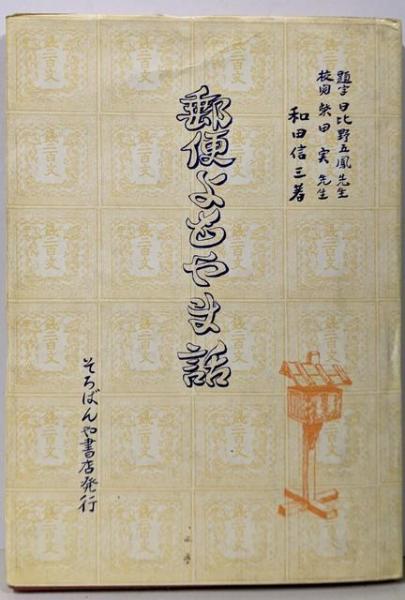 題字 日比野五鳳先生
校閲 柴田 実 先生
和田信三著
郵便よもやま話
そろばんや書店発行
銭二百文